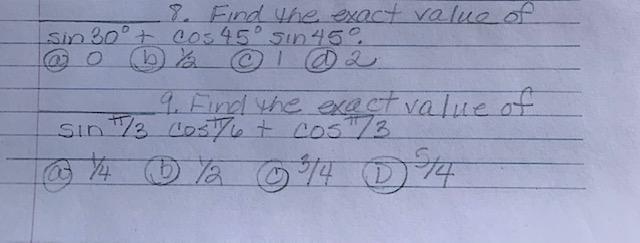 8. Find the exact value of
sin 30° + cos 45° sin 45°.
ⓐ 0 ⓑ ½ ⓒ 1 ⓓ 2
9. Find the exact value of
sin π/3 cos π/6 + cos π/3
ⓐ ¼ ⓑ ½ ⓒ 3/4 Ⓓ 5/4